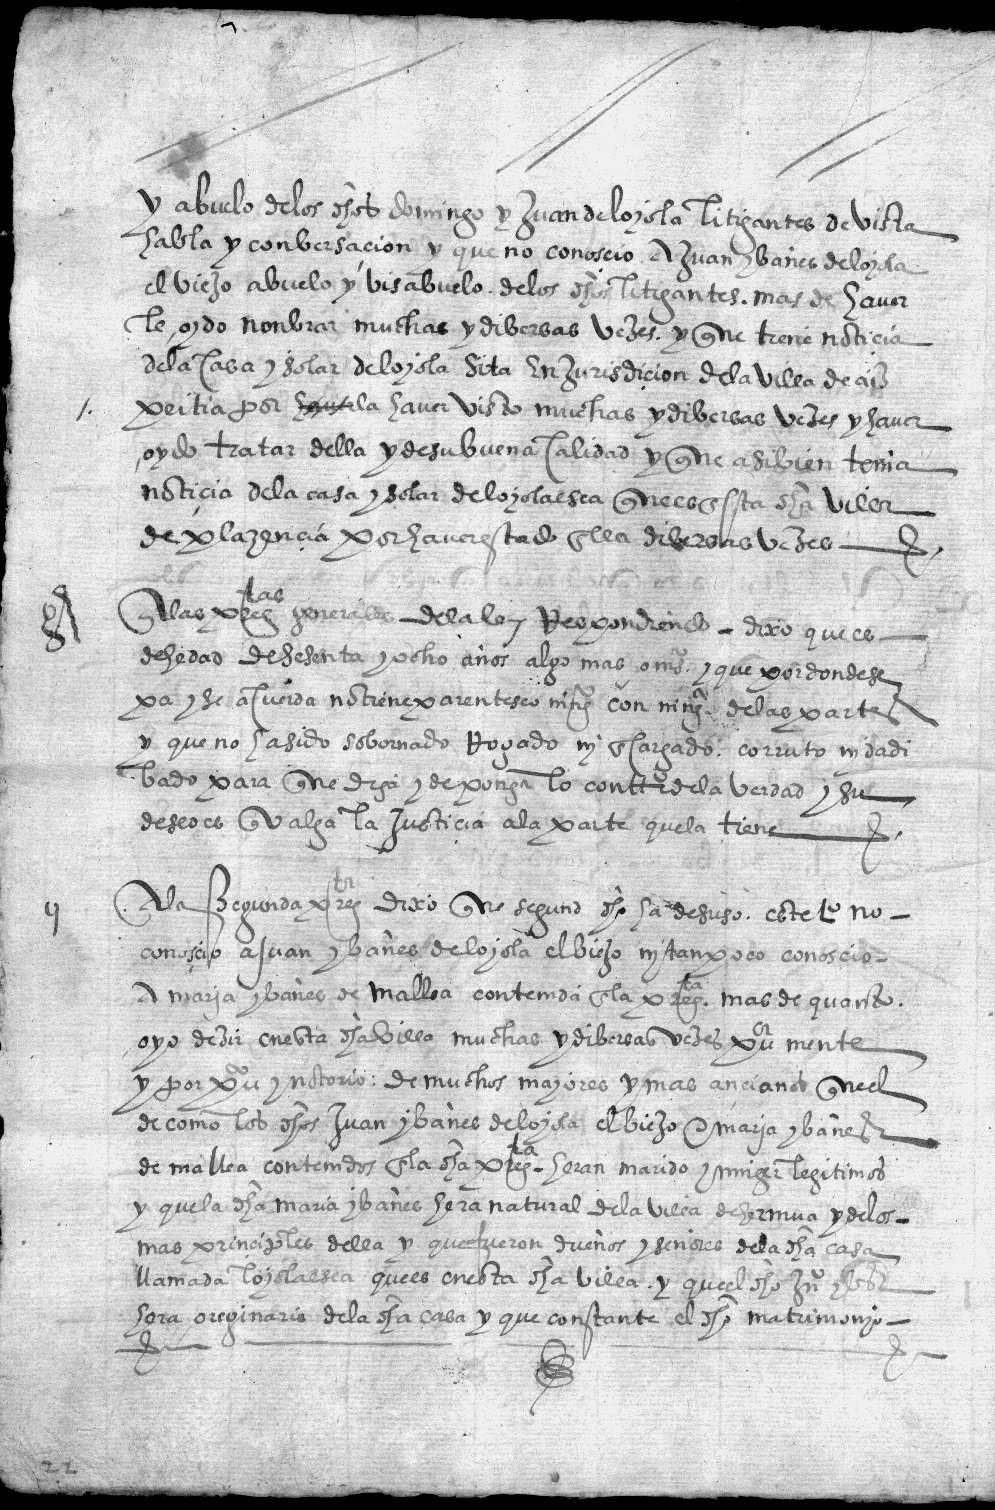 y abuelo delos dhos domingo y Juan deloyola litigantes de vista
habla y conbersacion y que no conoscio A Juan ybañes deloyola
el viejo abuelo y visabuelo delos dhos litigantes. mas de haver
le oydo nonbrar muchas y diberssas vezes. y que tiene noticia
dela casa y solar deloyola sita En Jurisdicion dela villa de
peitia por la haver visto muchas y diberssas vezes y haver
oydo tratar della y desu buena calidad y que asibien tenia
noticia dela casa y solar deloyolaesea que es esta dha villa
de plazencia por haver estado ella diberssas vezes
gl
A las pregtas generales dela ley Respondiendo dixo que es
dehedad desesenta y ocho años algo mas o ms. y que por donde se
pa y se acuerda no tiene parentesco ningo con ningo delas partes
y que no ha sido sobornado Rogado ni cargado. corruto ni dadi
bado para que diga y deponga lo contro dela verdad y su
deseo es valga la Justicia ala parte quela tiene
ij
A la segunda preg dixo que segund dho ha desuso. este to no
conoscio a Juan ybañes deloyola el viejo ni tanpoco conoscio
A maria ybañes de mallea contenida ela pregta. mas de quanto
oyo dezir enesta dha villa muchas y diberssas vezes puca mente
y por puco y notorio: de muchos mayores y mas ancianos quel
de como los dhos Juan ybañes deloyola el viejo e maria ybañes
de mallea contenidos ela dha pregta heran marido y muger legitimos
y quela dha maria ybañes hera natural dela villa dehermua y delos
mas principales della y que fueron dueños y señores dela dha casa
llamada loyolaesea quees enesta dha villa. y quel dho Juo ybs
hera oreginario dela dha casa y que constante el dho matrimonio
22